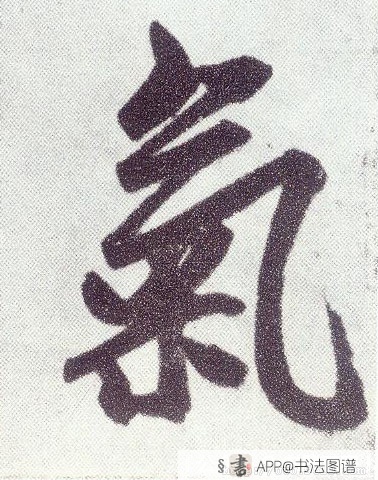 氣
§書 APP@书法图谱